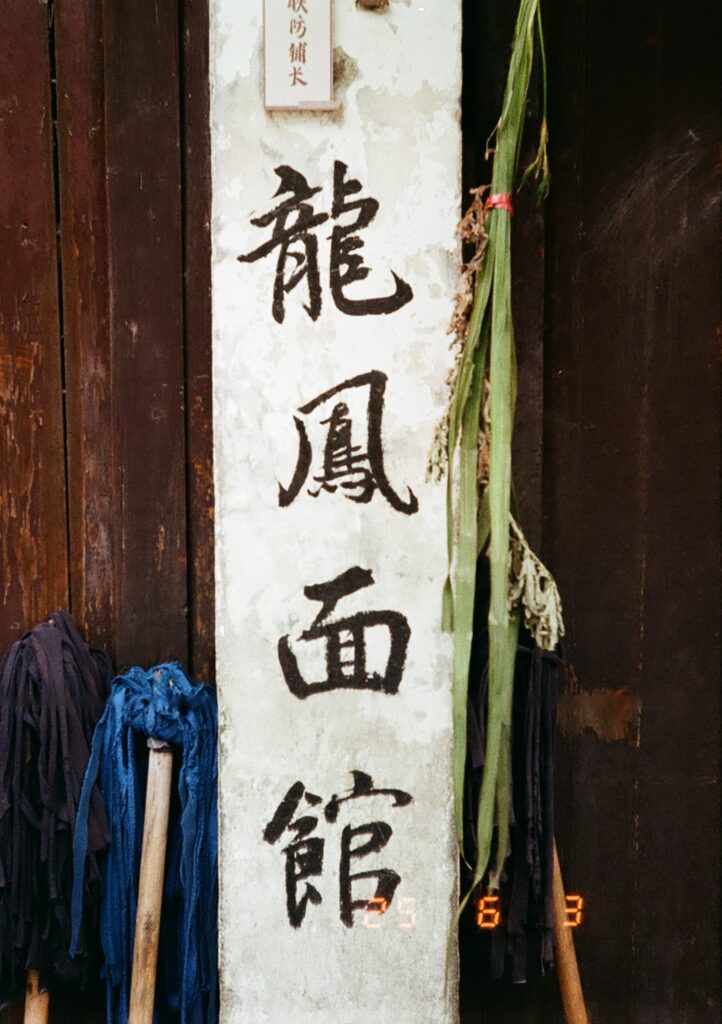 联防铺长
龍鳳面館
25 6 3